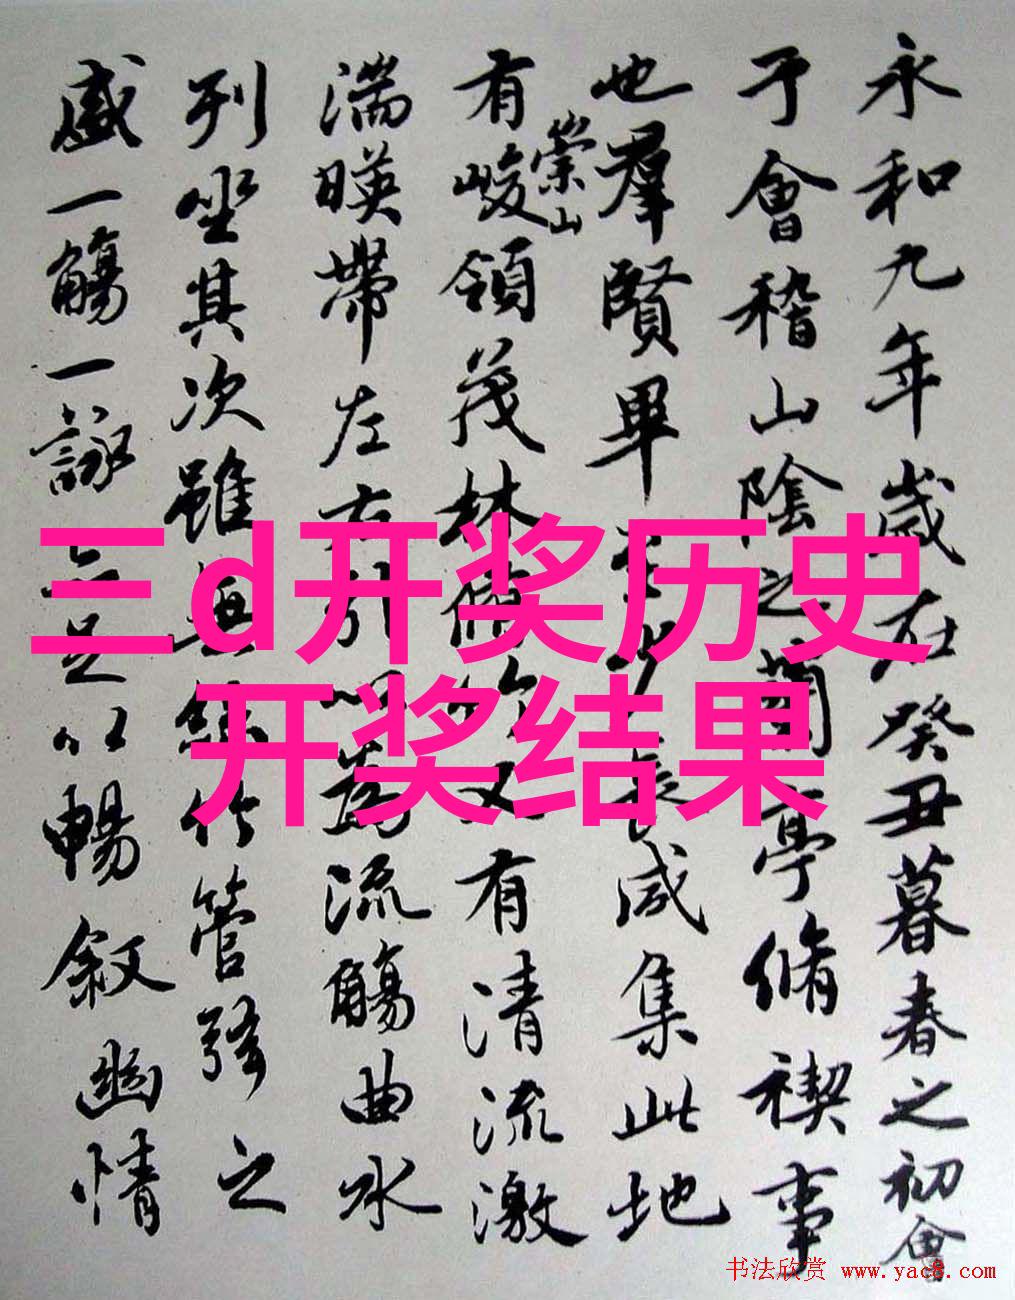 永和九年歲在癸丑暮春之初會
于會稽山陰之蘭亭脩禊事
也羣賢畢至少長咸集此地
有崇山峻領茂林脩竹又有清流激
湍暎帶左右引以為流觴曲水
列坐其次雖無絲竹管弦之
盛一觴一詠亦足以暢敘幽情
三d开奖历史
开奖结果
书法欣赏 www.yac8.com